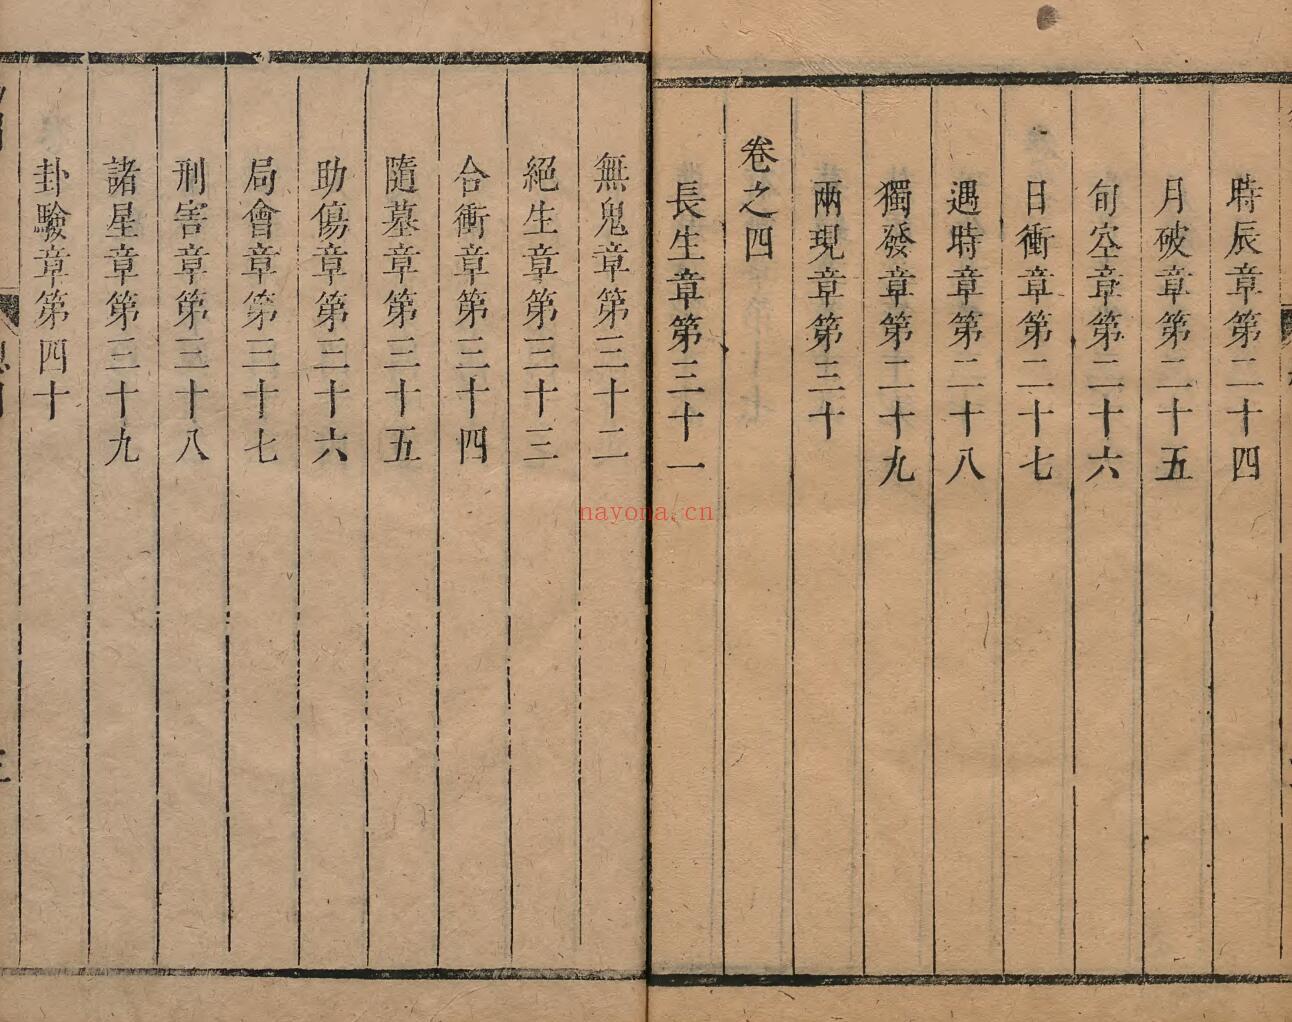 時辰章第二十四
月破章第二十五
旬空章第二十六
日衝章第二十七
遇時章第二十八
獨發章第二十九
兩現章第三十
卷之四
長生章第三十一
無鬼章第三十二
絕生章第三十三
合衝章第三十四
隨墓章第三十五
助傷章第三十六
局會章第三十七
刑害章第三十八
諸星章第三十九
卦驗章第四十
三
nayona.cn